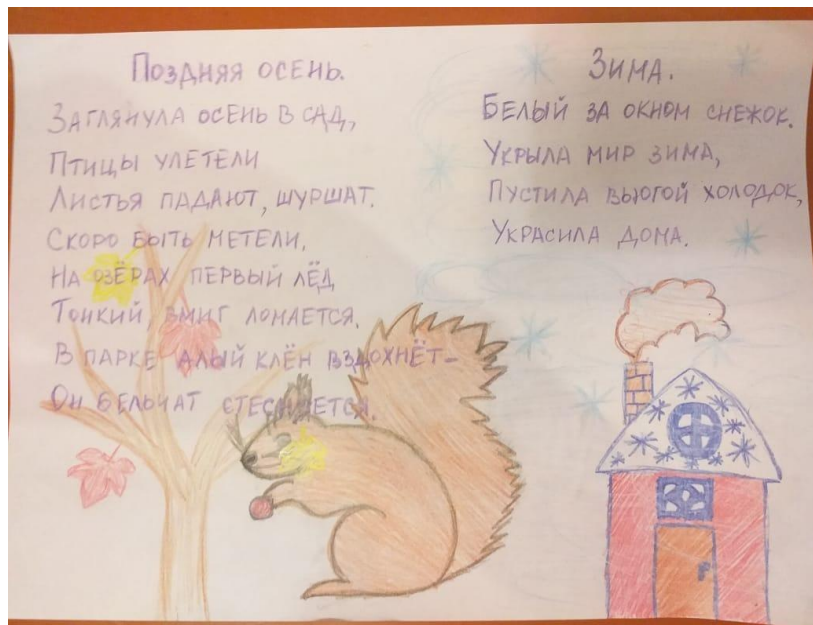 Поздняя осень.
Заглянула осень в сад,
Птицы улетели
Листья падают, шуршат.
Скоро быть метели.
На озёрах первый лёд
Тонкий, вмиг ломается.
В парке алый клён вздохнёт-
Он бельчат стесняется.
Зима.
Белый за окном снежок.
Укрыла мир зима,
Пустила вьюгой холодок,
Украсила дома.